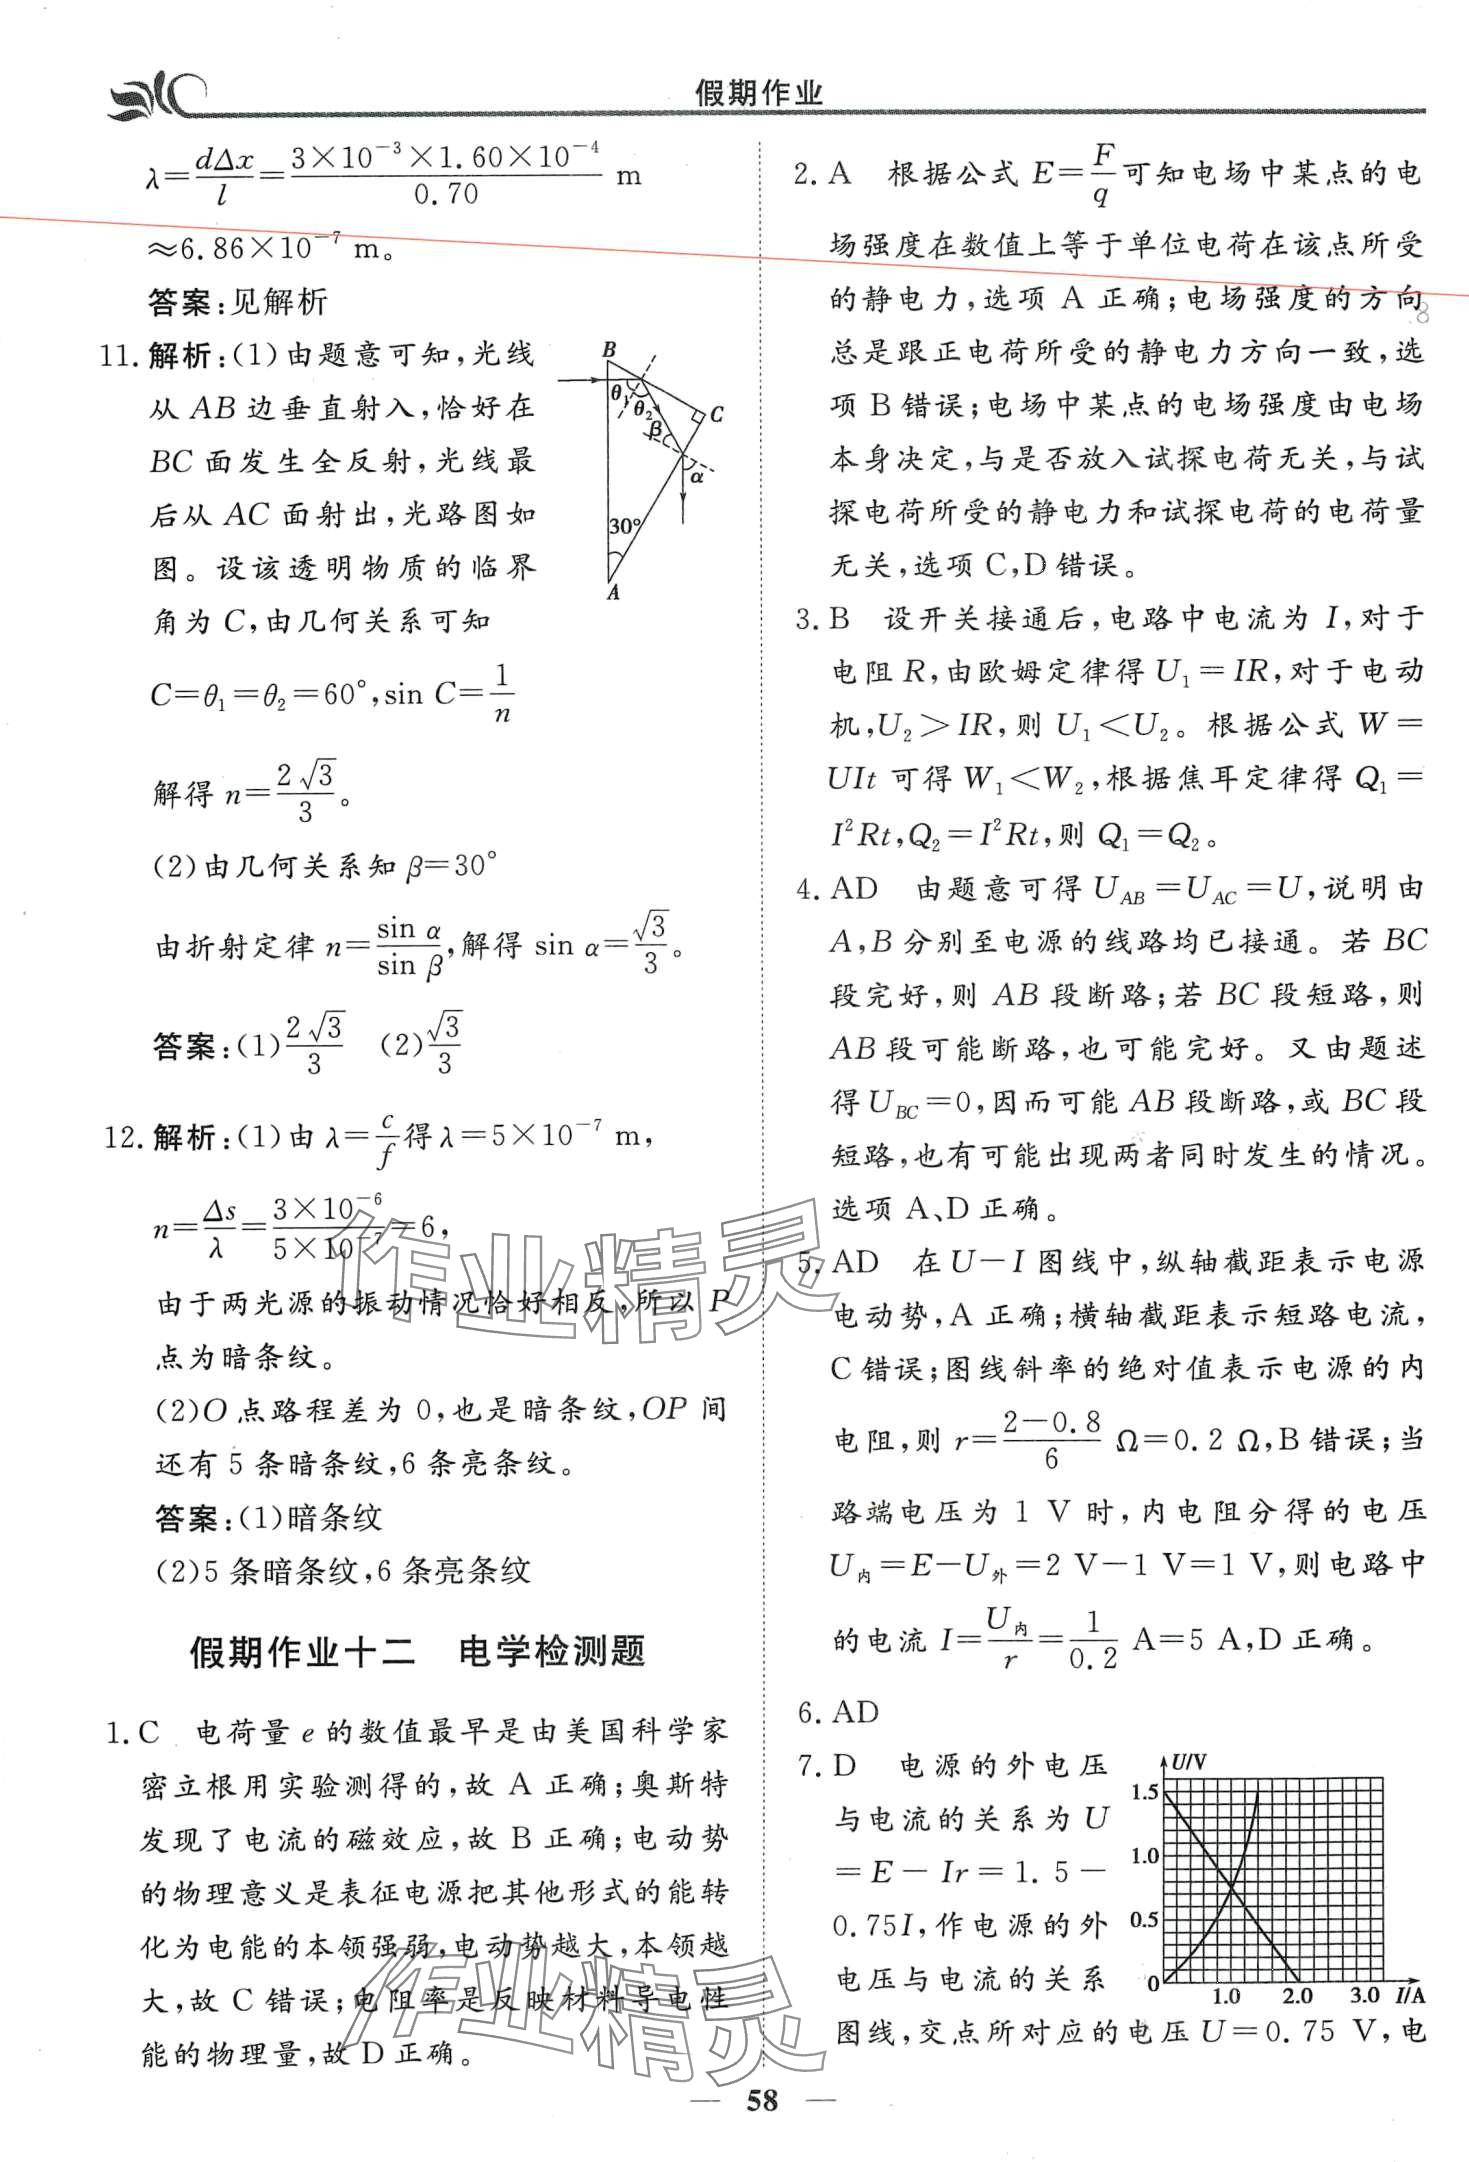 假期作业
λ=dΔx/l=3×10⁻³×1.60×10⁻⁴/0.70 m
≈6.86×10⁻⁷ m。
答案:见解析
11. 解析:(1)由题意可知,光线
从 AB 边垂直射入,恰好在
BC 面发生全反射,光线最
后从 AC 面射出,光路图如
图。设该透明物质的临界
角为 C,由几何关系可知
B
θ₁
θ₂
C
β
α
30°
A
C=θ₁=θ₂=60°,sin C=1/n
解得 n=2√3/3。
(2)由几何关系知 β=30°
由折射定律 n=sin α/sin β,解得 sin α=√3/3。
答案:(1)2√3/3 (2)√3/3
12. 解析:(1)由 λ=c/f得 λ=5×10⁻⁷ m,
n=Δs/λ=3×10⁻⁶/5×10⁻⁷=6,
由于两光源的振动情况恰好相反,所以 P
点为暗条纹。
(2)O 点路程差为 0,也是暗条纹,OP 间
还有 5 条暗条纹,6 条亮条纹。
答案:(1)暗条纹
(2)5 条暗条纹,6 条亮条纹
假期作业十二 电学检测题
1. C 电荷量 e 的数值最早是由美国科学家
密立根用实验测得的,故 A 正确;奥斯特
发现了电流的磁效应,故 B 正确;电动势
的物理意义是表征电源把其他形式的能转
化为电能的本领强弱,电动势越大,本领越
大,故 C 错误;电阻率是反映材料导电性
能的物理量,故 D 正确。
2. A 根据公式 E=F/q可知电场中某点的电
场强度在数值上等于单位电荷在该点所受
的静电力,选项 A 正确;电场强度的方向
总是跟正电荷所受的静电力方向一致,选
项 B 错误;电场中某点的电场强度由电场
本身决定,与是否放入试探电荷无关,与试
探电荷所受的静电力和试探电荷的电荷量
无关,选项 C,D 错误。
3. B 设开关接通后,电路中电流为 I,对于
电阻 R,由欧姆定律得 U₁=IR,对于电动
机,U₂>IR,则 U₁<U₂。根据公式 W=
UIt 可得 W₁<W₂,根据焦耳定律得 Q₁=
I²Rt,Q₂=I²Rt,则 Q₁=Q₂。
4. AD 由题意可得 U_AB=U_AC=U,说明由
A,B 分别至电源的线路均已接通。若 BC
段完好,则 AB 段断路;若 BC 段短路,则
AB 段可能断路,也可能完好。又由题述
得 U_BC=0,因而可能 AB 段断路,或 BC 段
短路,也有可能出现两者同时发生的情况。
选项 A、D 正确。
5. AD 在 U-I 图线中,纵轴截距表示电源
电动势,A 正确;横轴截距表示短路电流,
C 错误;图线斜率的绝对值表示电源的内
电阻,则 r=2-0.8/6 Ω=0.2 Ω,B 错误;当
路端电压为 1 V 时,内电阻分得的电压
U内=E-U外=2 V-1 V=1 V,则电路中
的电流 I=U内/r=1/0.2 A=5 A,D 正确。
6. AD
7. D 电源的外电压
与电流的关系为 U
=E-Ir=1.5-
0.75I,作电源的外
电压与电流的关系
U/V
1.5
1.0
0.5
0
1.0 2.0 3.0 I/A
图线,交点所对应的电压 U=0.75 V,电
作业精灵
作业精灵
— 58 —